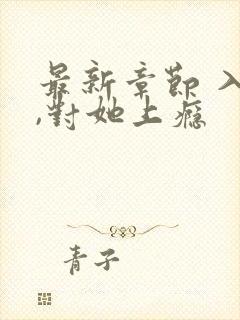 最新章節 入
,對她上瘾
青子